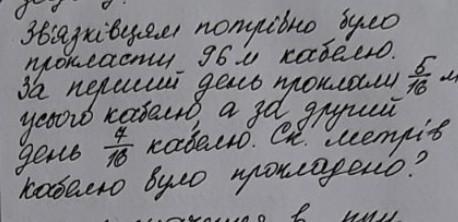 Зв'язківцям потрібно було
прокласти 96 м кабелю.
За перший день проклали 5/16 м
усього кабелю, а за другий
день 7/16 кабелю. Ск. метрів
кабелю було прокладено?